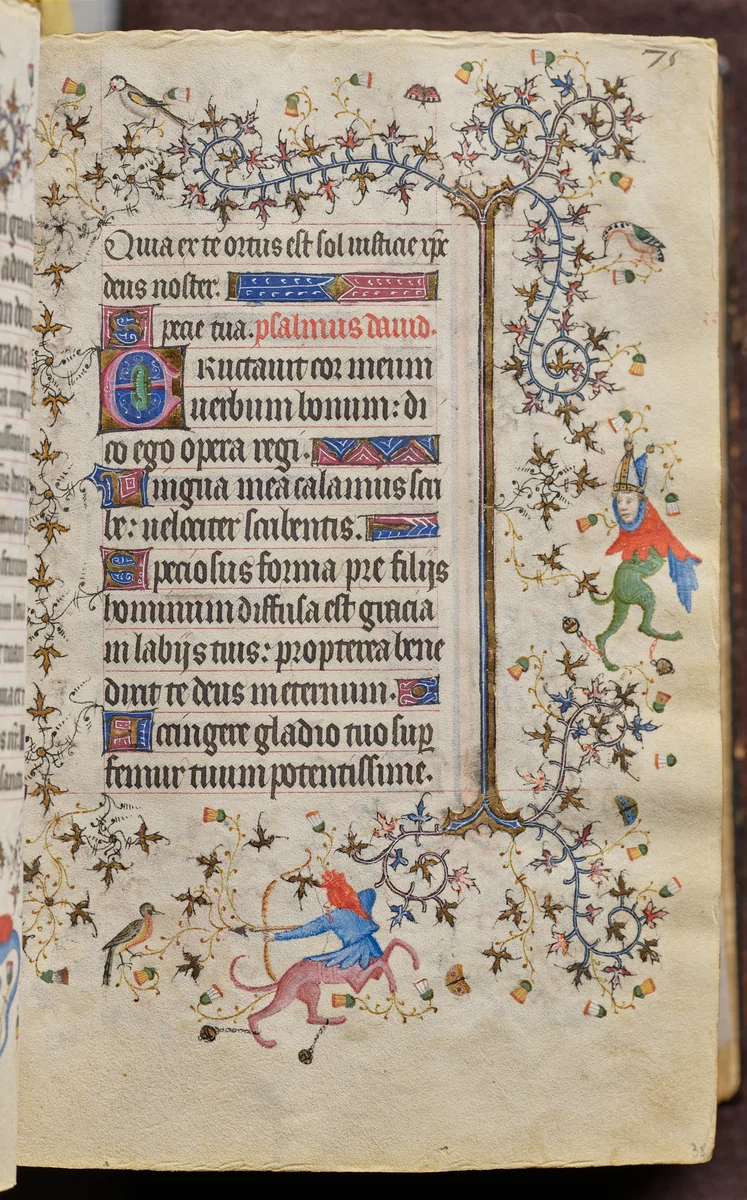 75
Quia ex te ortus est sol iusticie xp̄c
deus noster.
Specie tua. psalmus dauid.
Eructauit cor meum
uerbum bonum: di
co ego opera regi.
Lingua mea calamus scri
be: uelociter scribentis.
Speciosus forma pre filijs
hominum diffusa est gracia
in labijs tuis: propterea bene
dixit te deus in eternum.
Accingere gladio tuo sup̄
femur tuum potentissime.
38